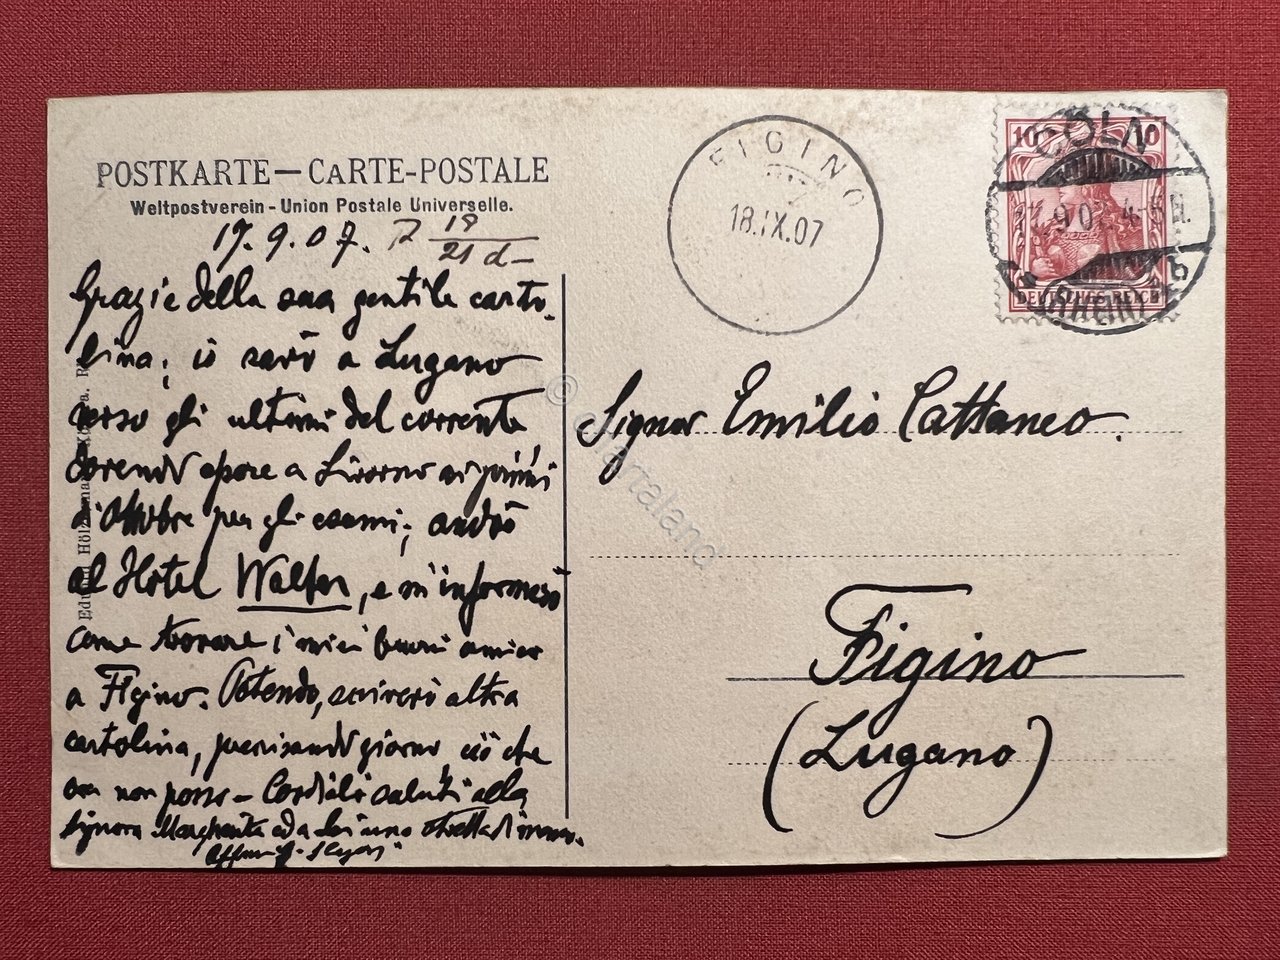 POSTKARTE — CARTE-POSTALE
Weltpostverein - Union Postale Universelle.
17.9.07. R 18/21 d-
Grazie della sua gentile carto-
lina; io sarò a Lugano
verso gli ultimi del corrente
dovendo essere a Livorno ai primi
d'ottobre per gli esami; andrò
al Hotel Walter, e m'informerò
come trovare i miei buoni amici
a Figino. Potendo, scriverò altra
cartolina, precisando giorno, ciò che
ora non posso - Cordiali saluti alla
Signora Margherita ed a Lei una stretta di mano.
FIGINO
18.IX.07
CÖLN
9 07 4-5 N.
(RHEIN)
10 10
DEUTSCHES REICH
Signor Emilio Cattaneo.
Figino
(Lugano)
© cartaland